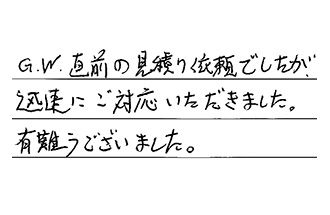 G.W.直前の見積り依頼でしたが、
迅速にご対応いただきました。
有難うございました。